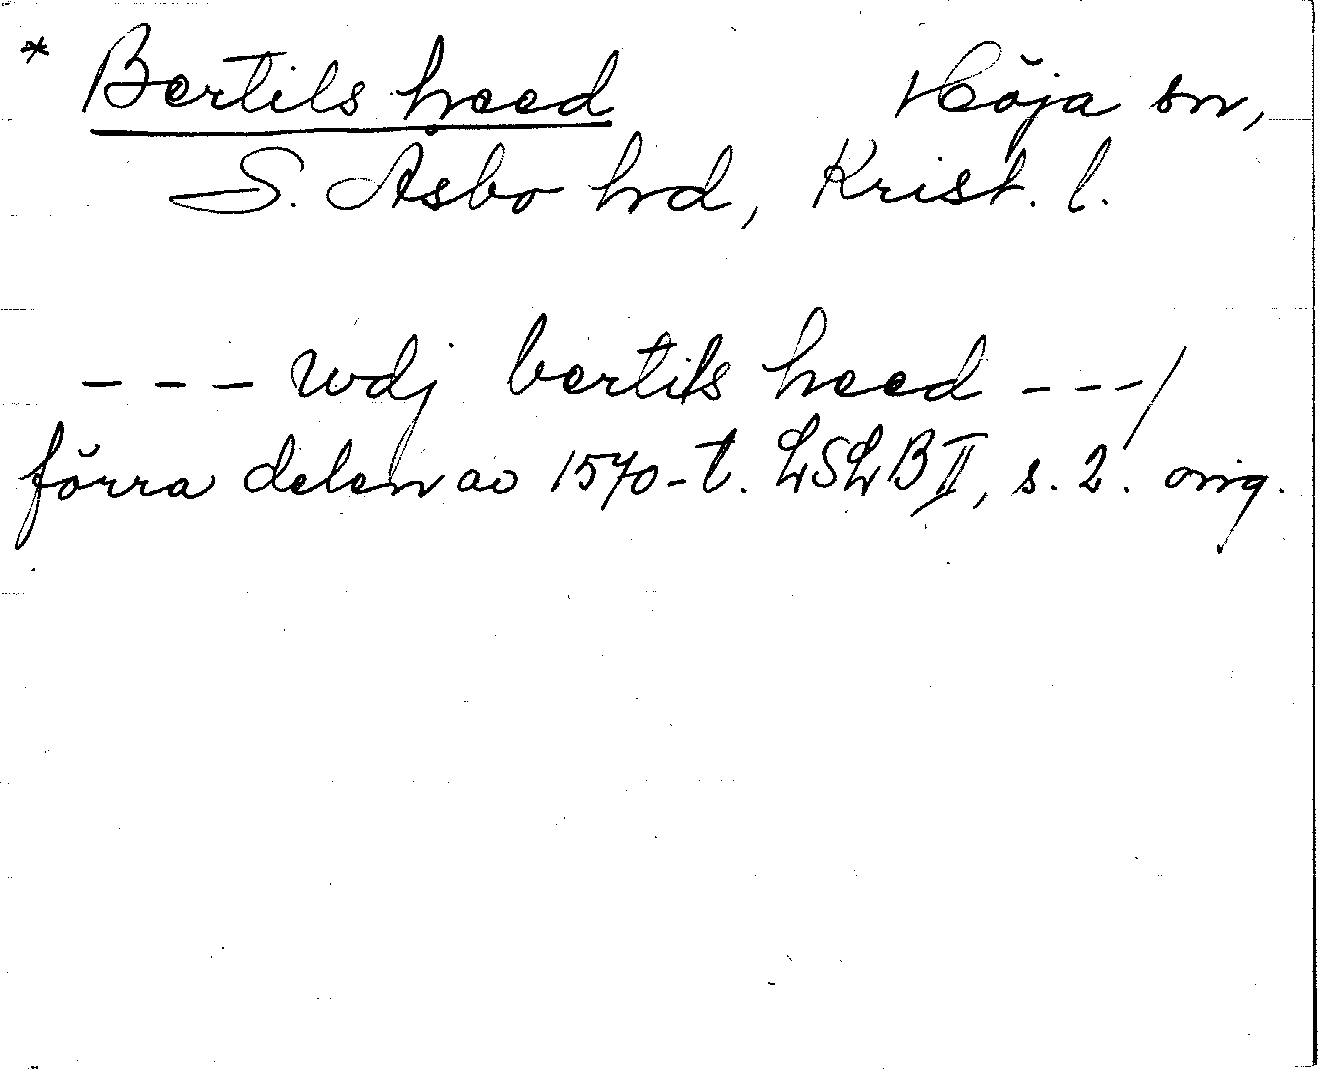 * Bertils heed Höja sn,
S. Åsbo hd, Krist. l.
--- wdj bertils heed ---/
förra delen av 1570-t. LSLB II, s. 2. orig.